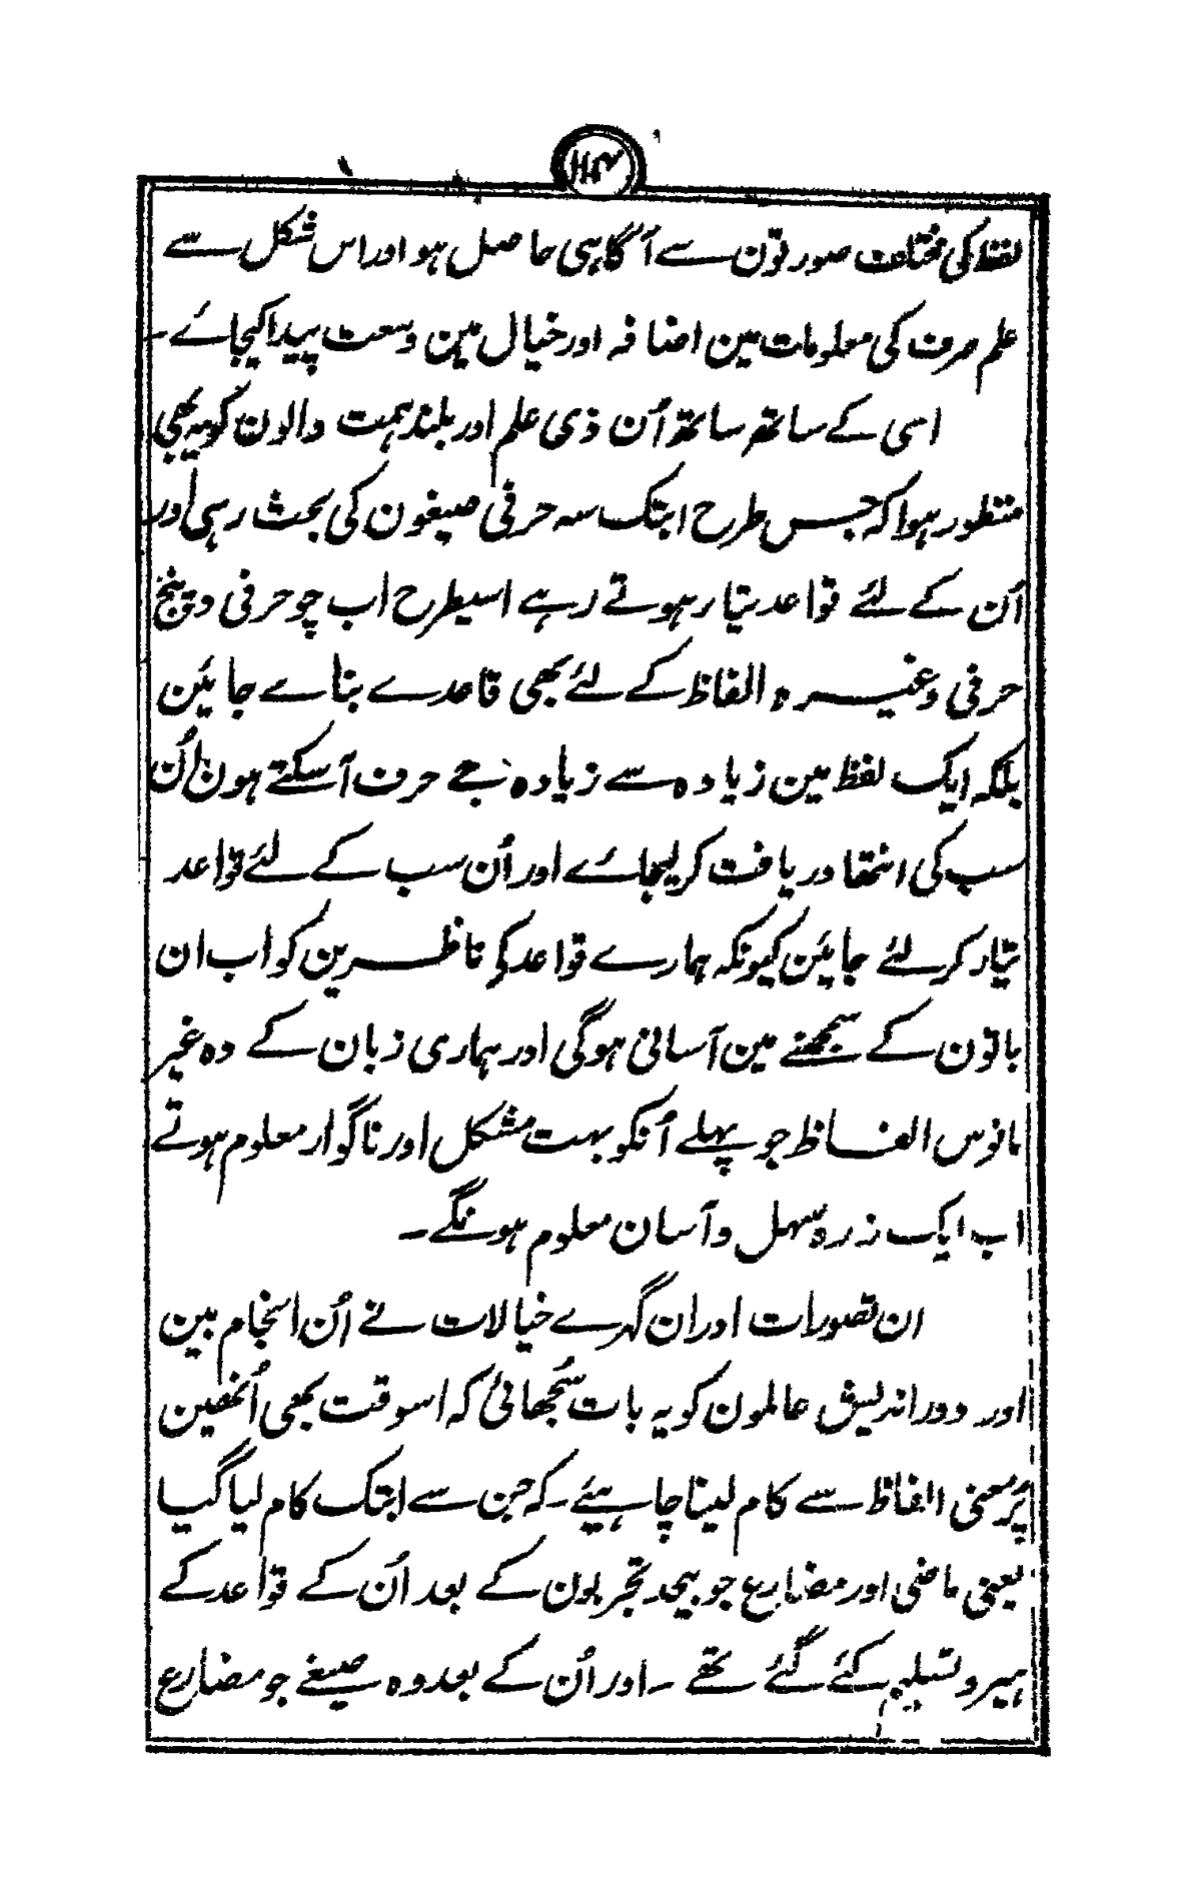 لفظ کی مختلف صورتون سے آگاہی حاصل ہو اور اس شکل سے
علم صرف کی معلومات مین اضافہ اور خیال مین وسعت پیدا کیجائے۔
اسی کے ساتھ ساتھ اُن ذی علم اور بلند ہمت والون کو یہ بھی
منظور ہوا کہ جس طرح ابتک سہ حرفی صیغون کی بحث رہی اور
اُن کے لئے قواعد تیار ہوتے رہے اسیطرح اب چو حرفی و پنج
حرفی وغیرہ الفاظ کے لئے بھی قاعدے بناے جائین
بلکہ ایک لفظ مین زیادہ سے زیادہ جے حرف آسکتے ہون اُن
سب کی انتہا دریافت کرلیجائے اور اُن سب کے لئے قواعد
تیار کرلئے جائین کیونکہ ہمارے قواعد کے ناظرین کو اب ان
باتون کے سمجھنے مین آسانی ہوگی اور ہماری زبان کے وہ غیر
مانوس الفاظ جو پہلے اُنکو بہت مشکل اور ناگوار معلوم ہوتے
اب ایک ذرہ سہل و آسان معلوم ہونگے۔
ان تصورات اور ان گہرے خیالات نے اُن انجام بین
اور دور اندیش عالمون کو یہ بات سُجھائی کہ اسوقت بھی اُنھین
پُر معنی الفاظ سے کام لینا چاہیئے۔ کہ جن سے ابتک کام لیا گیا
یعنی ماضی اور مضارع جو بیحد تجربون کے بعد اُن کے قواعد کے
ہیرو تسلیم کئے گئے تھے۔ اور اُن کے بعد وہ صیغے جو مضارع